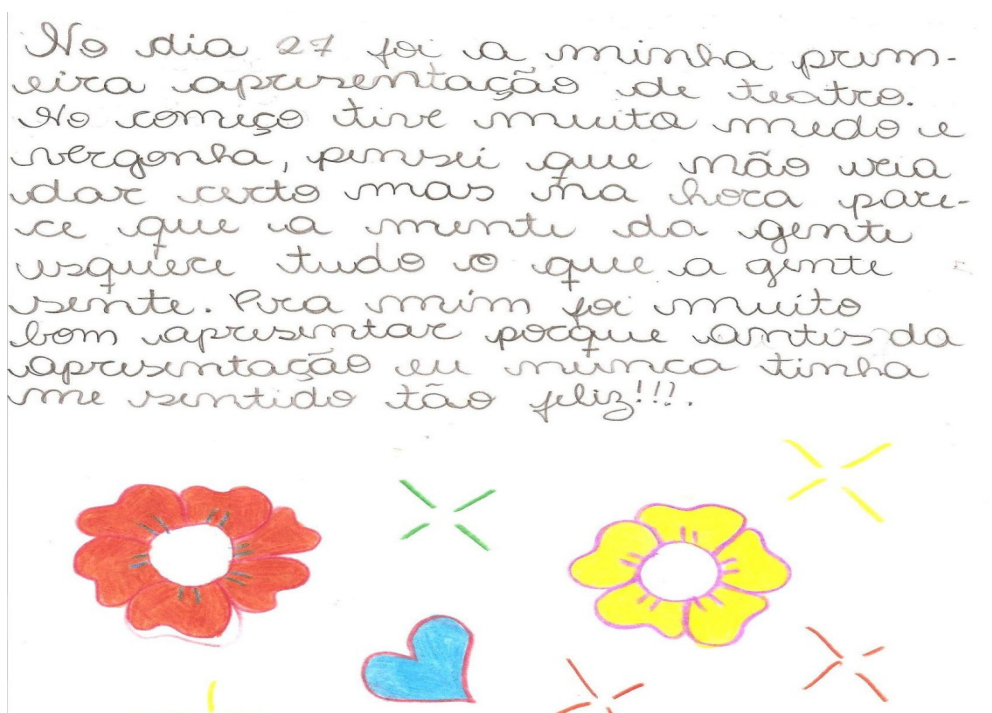 No dia 27 foi a minha prim-
eira apresentação de teatro.
No começo tive muito medo e
vergonha, pensei que não iria
dar certo mas na hora pare-
ce que a mente da gente
esquece tudo o que a gente
sente. Pra mim foi muito
bom apresentar porque antes da
apresentação eu nunca tinha
me sentido tão feliz!!!.